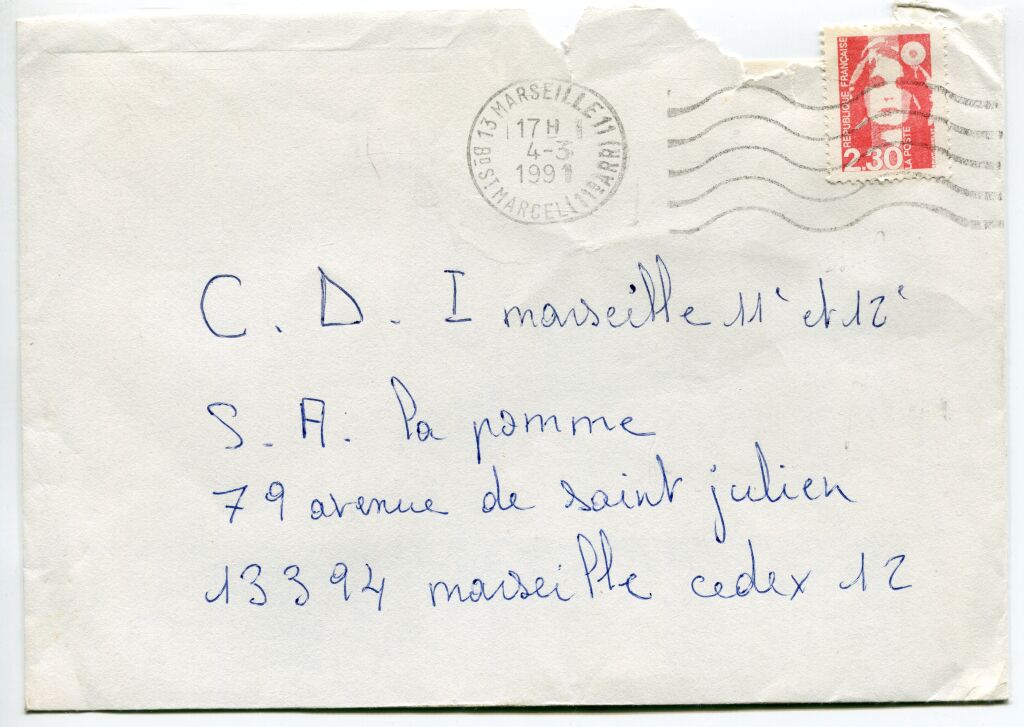 13 MARSEILLE 11
17 H
4-3
1991
Bd ST MARCEL (11e ARR)
REPUBLIQUE FRANÇAISE
LA POSTE
2,30
C. D. I marseille 11e et 12e
S. A. la pomme
79 avenue de saint julien
13394 marseille cedex 12